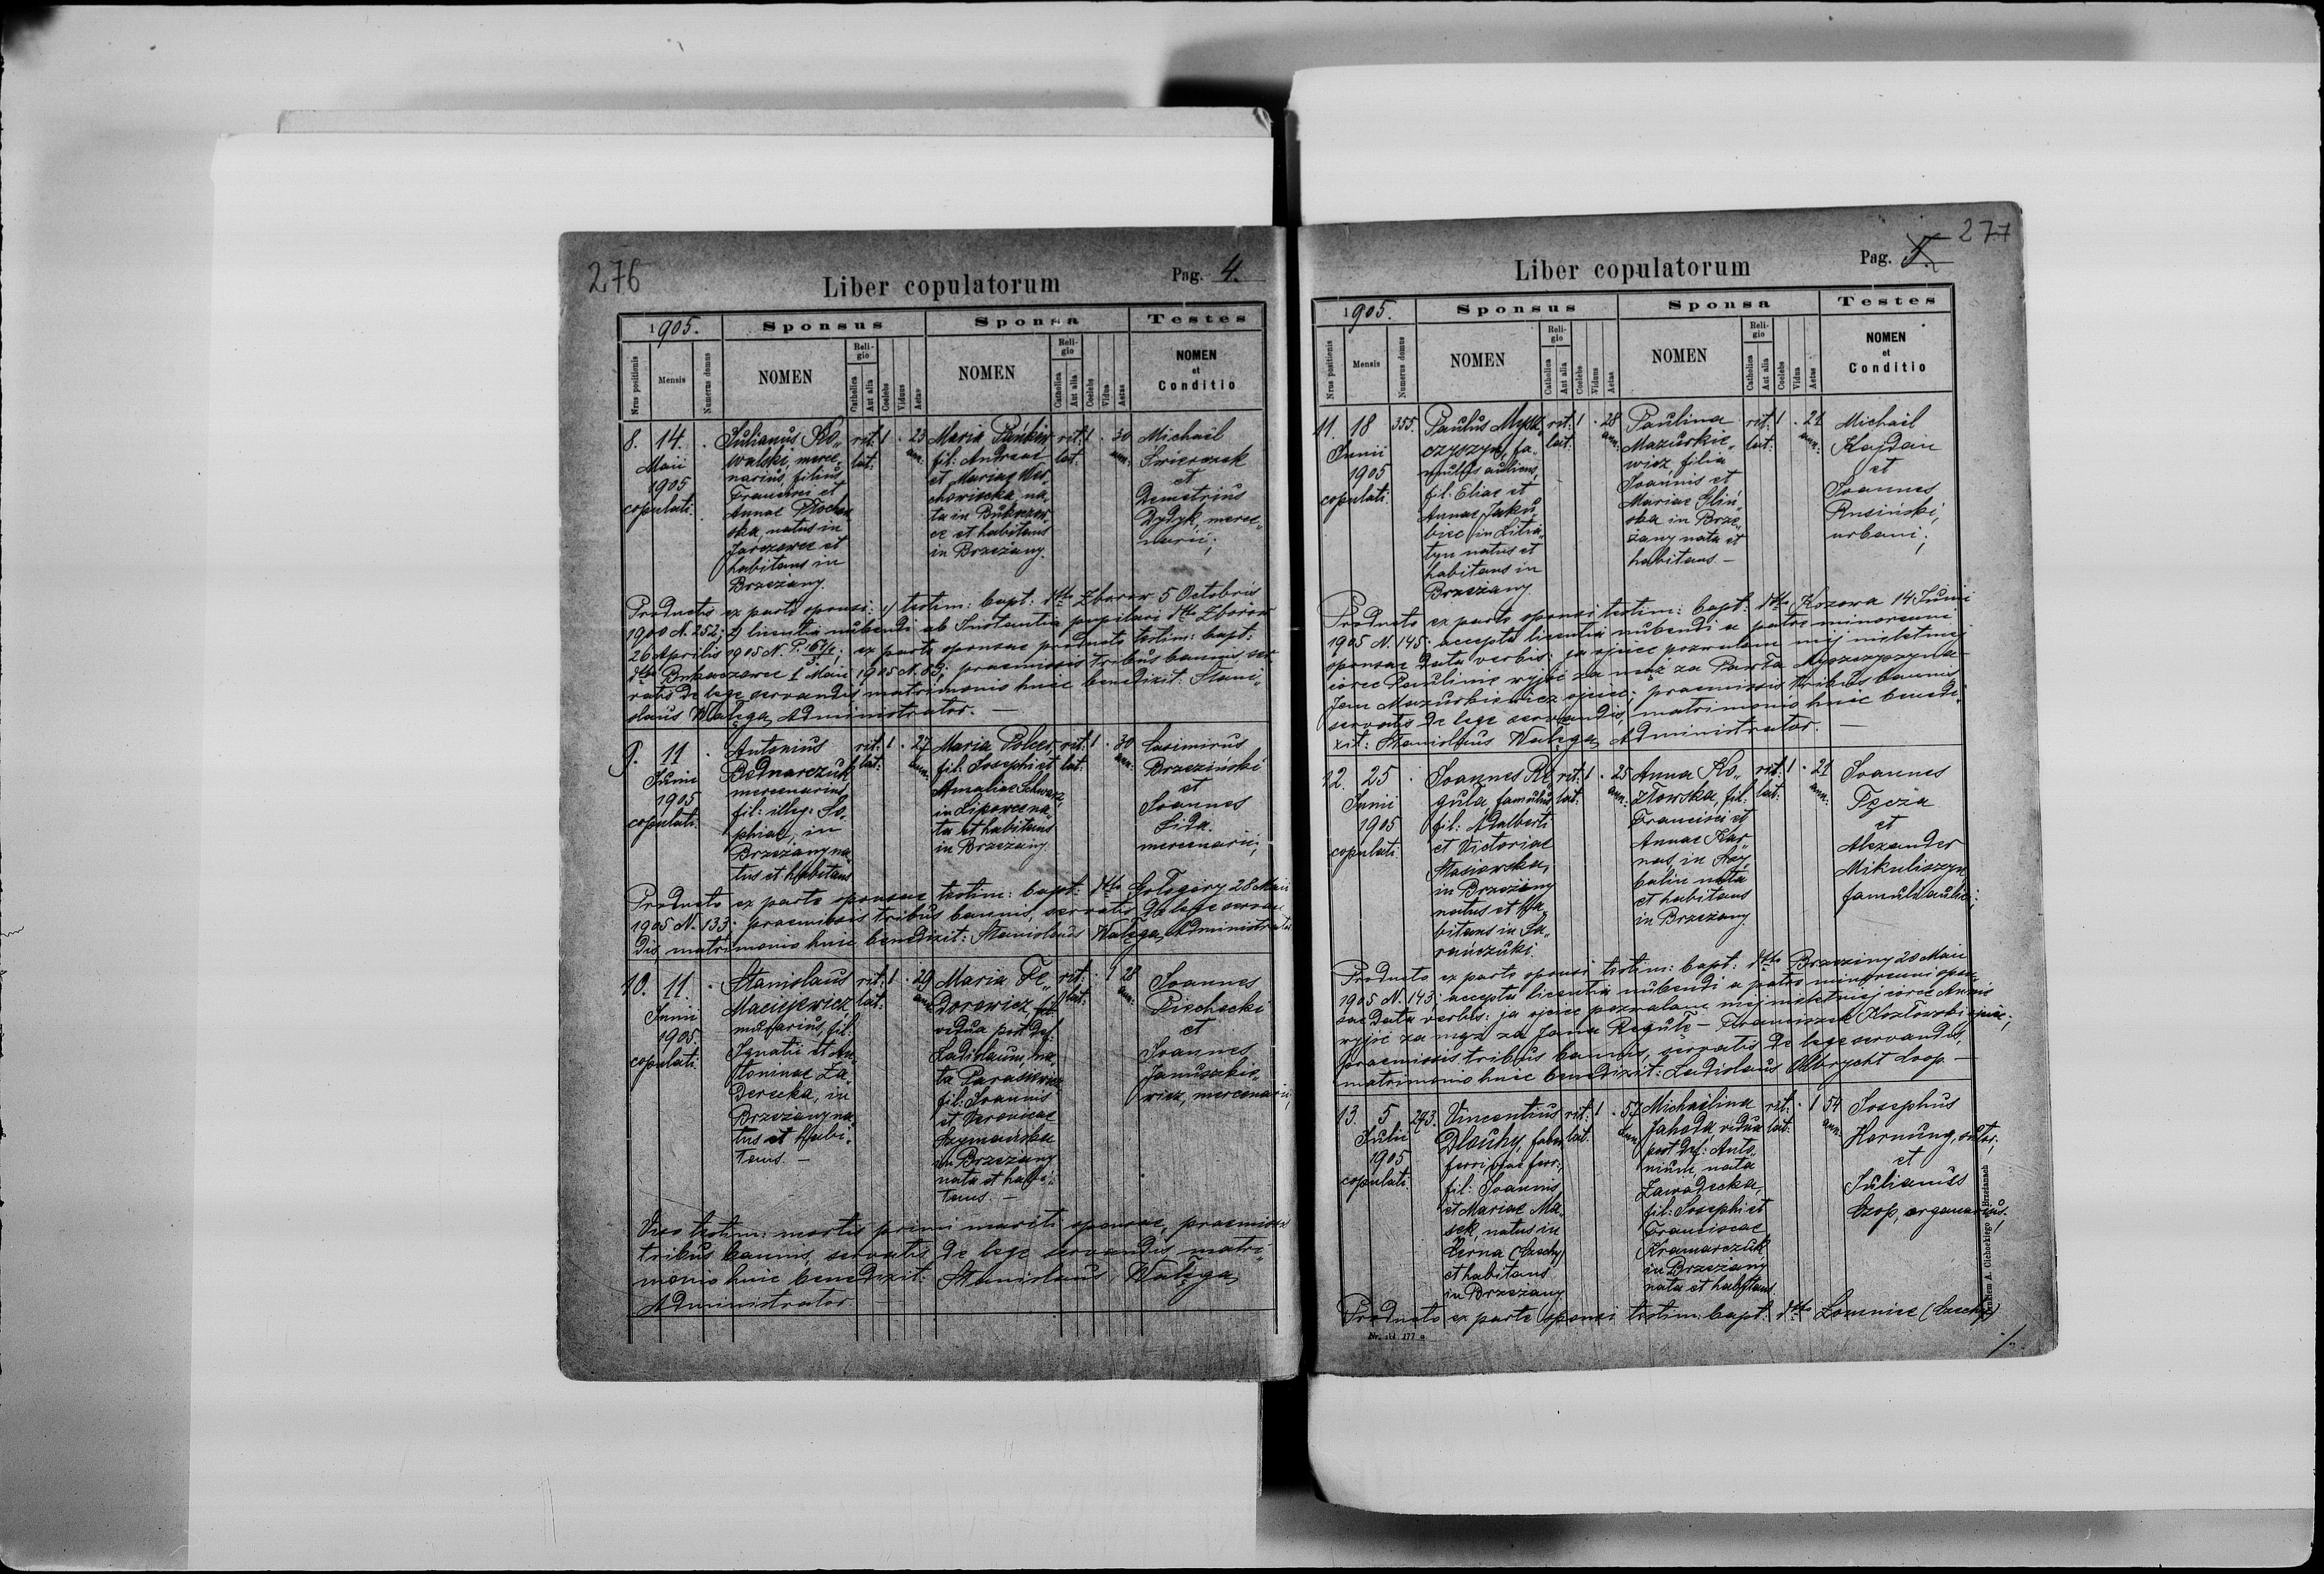 276
Liber copulatorum
Pag. 4.
1905.
Sponsus
Sponsa
Testes
Nrus positionis
Mensis
Numerus domus
NOMEN
Religio
Catholica
Aut alia
Coelebs
Viduus
Aetas
NOMEN
Religio
Catholica
Aut alia
Coelebs
Vidua
Aetas
NOMEN
et
Conditio
8.
14.
Maii
1905
copulati.
Julianus Ko„
walski, merce„
narius, filius
Francisci et
Annae
ska, natus in
Jarczowce et
habitans in
Brzeżany.
rit:
lat:
1
23
ann:
Maria
fil: Andreae
et Mariae
na„
ta in
ce et habitans
in Brzeżany.
rit:
lat:
1
30
ann:
Michaël
Swierczek
et
Demetrius
Dydyk, merce„
narii;
Producto ex parte sponsi: 1) testim: bapt: dtto Zborow 5 Octobris
1900 N. 252; 2) licentia nubendi ab Instantia pupilari dtto Zborow
26 Aprilis 1905 N. P. ; ex parte sponsae producto testim: bapt:
dtto 1 Maii 1905 N. 83; praemissis tribus bannis, ser„
vatis de lege servandis matrimonio huic benedixit: Stani„
slaus Wałęga, Administrator. —
9.
11
Junii
1905
copulati.
Antonius
Bednarczuk
mercenarius
fil: illeg: So„
phiae, in
Brzeżany na„
tus et habitans
rit:
lat:
1
27
ann:
Maria Polcer,
fil: Josephi et
Amaliae Schwarz,
in Lipowce na„
ta et habitans
in Brzeżany.
rit:
lat:
1
30
ann:
Casimirus
Brzeziński
et
Joannes
Lida.
mercenarii;
Producto ex parte sponsae testim: bapt: dtto Gołogóry 28 Maii
1905 N. 133; praemissis tribus bannis, servatis de lege servan„
dis, matrimonio huic benedixit: Stanislaus Wałęga, Administrator
10.
11.
Junii
1905.
copulati.
Stanislaus
Maciejewicz,
murarius, fil:
Ignatii et An„
toninae Za„
derecka, in
Brzeżany na„
tus et habi„
tans. —
rit:
lat:
1
29
ann:
Maria Fe„
dorowicz,
vidua post def:
Ladislaum, na„
ta Parasiewicz
fil: Joannis
et Veronicae
Szymańska
in Brzeżany
nata et habi„
tans. —
rit:
lat:
1
28
ann:
Joannes
Piechocki
et
Joannes
Januszkie„
wicz, mercenarii;
Viso testim: mortis primi mariti sponsae, praemissis
tribus bannis, servatis de lege servandis, matri„
monio huic benedixit: Stanislaus Wałęga,
Administrator —
277
Liber copulatorum
Pag. 5.
1905.
Sponsus
Sponsa
Testes
Nrus positionis
Mensis
Numerus domus
NOMEN
Religio
Catholica
Aut alia
Coelebs
Viduus
Aetas
NOMEN
Religio
Catholica
Aut alia
Coelebs
Vidua
Aetas
NOMEN
et
Conditio
11.
18
Junii
1905
copulati.
355.
Paulus Mysz„
czyszyn, fa„
mulus aulicus,
fil: Eliae et
Annae Jaku„
biec, in Litia„
tyn natus et
habitans in
Brzeżany.
rit:
lat:
1
28
ann:
Paulina
Mazurkie„
wicz, filia
Joannis et
Mariae Gliń„
ska in Brze„
żany nata et
habitans. —
rit:
lat:
1
21
ann:
Michaël
Kajdan
et
Joannes
Rusiński,
urbani;
Producto ex parte sponsi testim: bapt: dtto Kozowa 14 Junii
1905 N. 145; accepta licentia nubendi a patre minorenni
sponsae data verbis: ja ojciec pozwalam mej nieletniej
córce Paulinie wyjść za mąż za Pawła Myszczyszyna —
Jan Mazurkiewicz ojciec; praemissis tribus bannis
servatis de lege servandis, matrimonio huic benedi„
xit: Stanislaus Wałęga, Administrator. —
12.
25
Junii
1905
copulati.
Joannes Re„
guła, famulus,
fil: Adalberti
et Victoriae
Stasiowska,
in Brzeziny
natus et ha„
bitans in Sa„
rańczuki.
rit:
lat:
1
25
ann:
Anna Ko„
złowska, fil:
Francisci et
Annae Kar„
nas, in
balin nata
et habitans
in Brzeżany.
rit:
lat:
1
21
ann:
Joannes
Tęcza
et
Alexander
Mikuliszyn,
famuli aulici;
Producto ex parte sponsi testim: bapt: dtto Brzeziny 20 Maii
1905 N. 143; accepta licentia nubendi a patre minorenni spon„
sae data verbis: ja ojciec pozwalam mej nieletniej córce Annie
wyjść za mąż za Jana Regułę — Franciszek Kozłowski ojciec;
praemissis tribus bannis, servatis de lege servandis,
matrimonio huic benedixit: Ladislaus Olbrycht coop. —
13.
5
Julii
1905
copulati.
293.
Vincentius
Dlouhy, faber
ferri, viae ferr:,
fil: Joannis
et Mariae Ma„
sek, natus in
Cerna (Czechy)
et habitans
in Brzeżany
rit:
lat:
1
57
ann:
Michaëlina
Jahoda, vidua
post def: Anto„
nium, nata
Zawadecka,
fil: Josephi et
Franciscae
Kramarczuk,
in Brzeżany
nata et habitans
rit:
lat:
1
54
ann:
Josephus
Hornung, sutor,
et
Julianus
Czop, organarius.
Producto ex parte sponsi testim: bapt: dtto Lomnice (Czechy)
Nr. skł. 177 a
Drukiem A. Cichockiego w Brzeżanach
./.